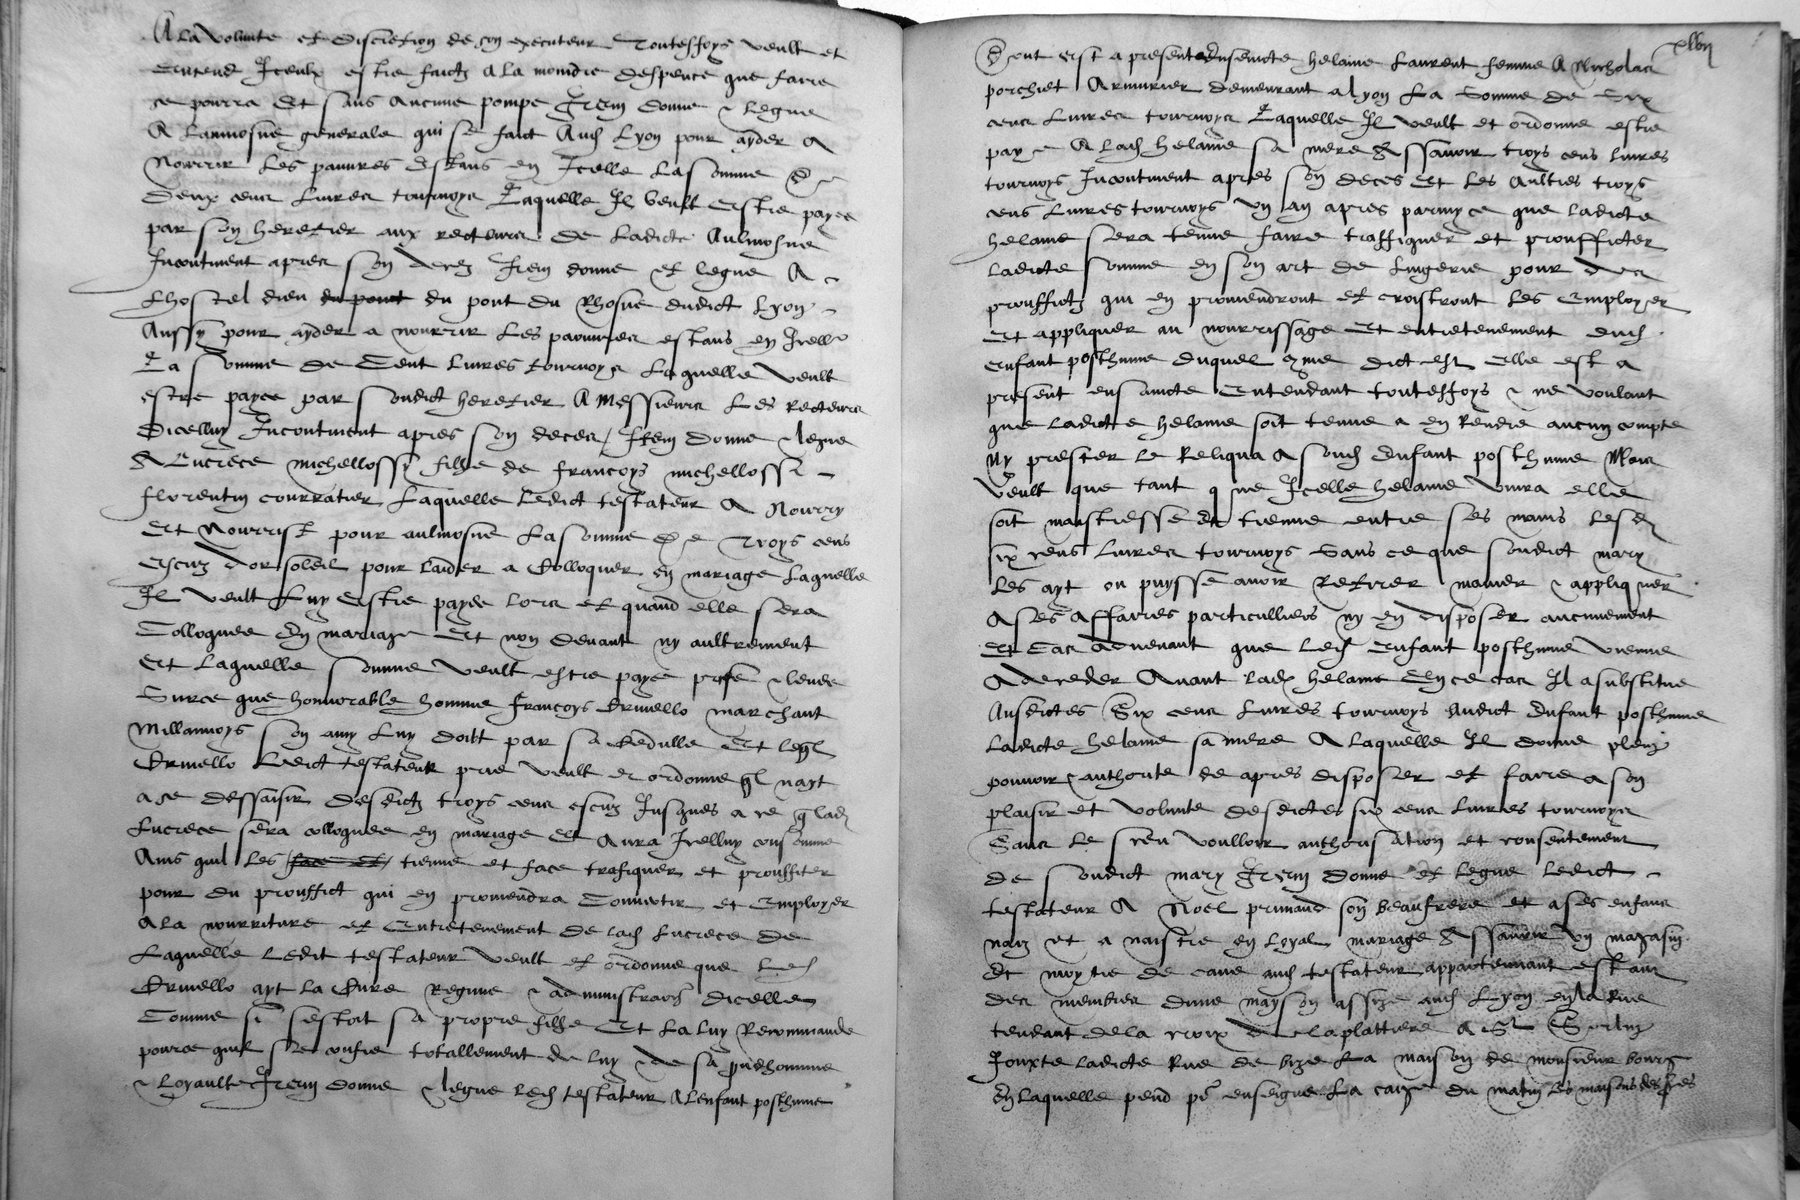 A la volunte et discretion de son executeur Toutesfoys veult et
entend Iceulx estre faictz a la moindre despence que faire
ce pourra Et sans aucune pompe Item donne & legue
A laumosne generale qui se faict Aud Lyon pour ayder a
Nourrir Les pauvres Estans en Icelle La somme De
deux cens Livres tournoys Laquelle Il veult Estre payee
par son heretier aux recteurs de Ladicte Aulmosne
Incontinent apres son deces Item donne et legue A
Lhostel dieu du pont du pont du Rhosne dudict Lyon
Aussy pour ayder a nourrir Les pauvres estans en Icelle
La somme de Cent Livres tournoys Laquelle veult
estre payee par sondict heretier A Messieurs Les Recteurs
Dicelluy Incontinent apres son deces / Item donne & legue
A Lucrece michellossy fille de francoys michellossi
florentin courratier Laquelle Ledict testateur A Nourry
Et Nourrist pour aulmosne La somme De Troys cens
Escuz Dor soleil pour Laider a Colloquer en mariage Laquelle
Il veult Luy Estre payee Lors et quand elle sera
Colloquee En mariage Et non devant ny aultrement
Et Laquelle somme veult estre payee & levee
Surce que honnorable homme francoys Crivello marchant
Millannoys son amy Luy doibt par sa Cedulle Et leql
Crivello Ledict testateur prie veult et ordonne ql nayt
a se dessaisir desdictz troys cens escuz Jusques a ce q lad
Lucrece sera colloquee en mariage Et Aura Icelluy consomme
Ains quil Les face et tienne et face trafiquer et prouffiter
pour du prouffict qui en proviendra Convertir et Employer
A la nourriture et Entretenement de lad Lucrece de
Laquelle Ledit testateur veult et ordonne que Led
Crivello ayt La Cure Regime & administraon dicelle
Comme si sestoit sa propre fille Et La luy Recommande
pource quil se confie totallement de luy & de sa prudhommie
& Loyaulte Item donne & legue Led testateur A lenfant posthume
xlvii
Dont Est a present enseincte helaine Laurent femme A Nicholas
porchiet Armurier demeurant a Lyon La Somme De Six
cens Livres tournoys Laquelle Il veult et ordonne estre
payee A lad helaine sa mere Assavoir troys cens livres
tournoys Incontinent apres son deces Et Les Aultres troys
cens Livres tournoys un an apres parmy ce que ladicte
helaine sera tenue faire traffiquer et prouffiter
Ladicte somme En son art de Lingerie pour des
prouffictz qui en proviendront et croistront Les Employer
Et appliquer au nourrissage Et entretenement dud
enfant posthume duquel comme dict est Elle est a
present enssaincte Entendant toutesfoys & ne voulant
que Ladicte helaine soit tenue a en Rendre aucun compte
Ny prester Le Reliqua A soud Enfant posthume Mais
veult que tant q ne Icelle helaine vivra elle
soit maistresse et tienne entre ses mains Lesd
six cens Livres tournoys Sans ce que soudict mary
Les ayt ou puysse avoir Retirer manier & appliquer
A ses Affaires particulliers ny En disposer aucunement
Et Cas Advenant que Led Enfant posthume vienne
A deceder Avant Lad helaine En ce cas Il a substitue
Ausdictes Six cens Livres tournoys Audict Enfant posthume
Ladicte helaine sa mere A laquelle Il donne plein
pouvoir & authorite de apres disposer et faire a son
plaisir et volunte desdictes six cens Livres tournoys
Sans Le sceu voulloir authorisation et consentement
de soudict mary Item donne et Legue Ledict
testateur A Noel primaud son beaufrere et a ses enfans
naiz et a naistre en Loyal mariage Assavoir un magasin
Et moytie de cave aud testateur appartenant estans
des membres dune mayson assize aud Lyon En la Rue
tendant de la croix de La plattiere A St Sorlin
Jouxte Ladicte Rue de bize La maison de monsieur bourg
En laquelle pend pr enseigne La caige du matin Les maisons des fres